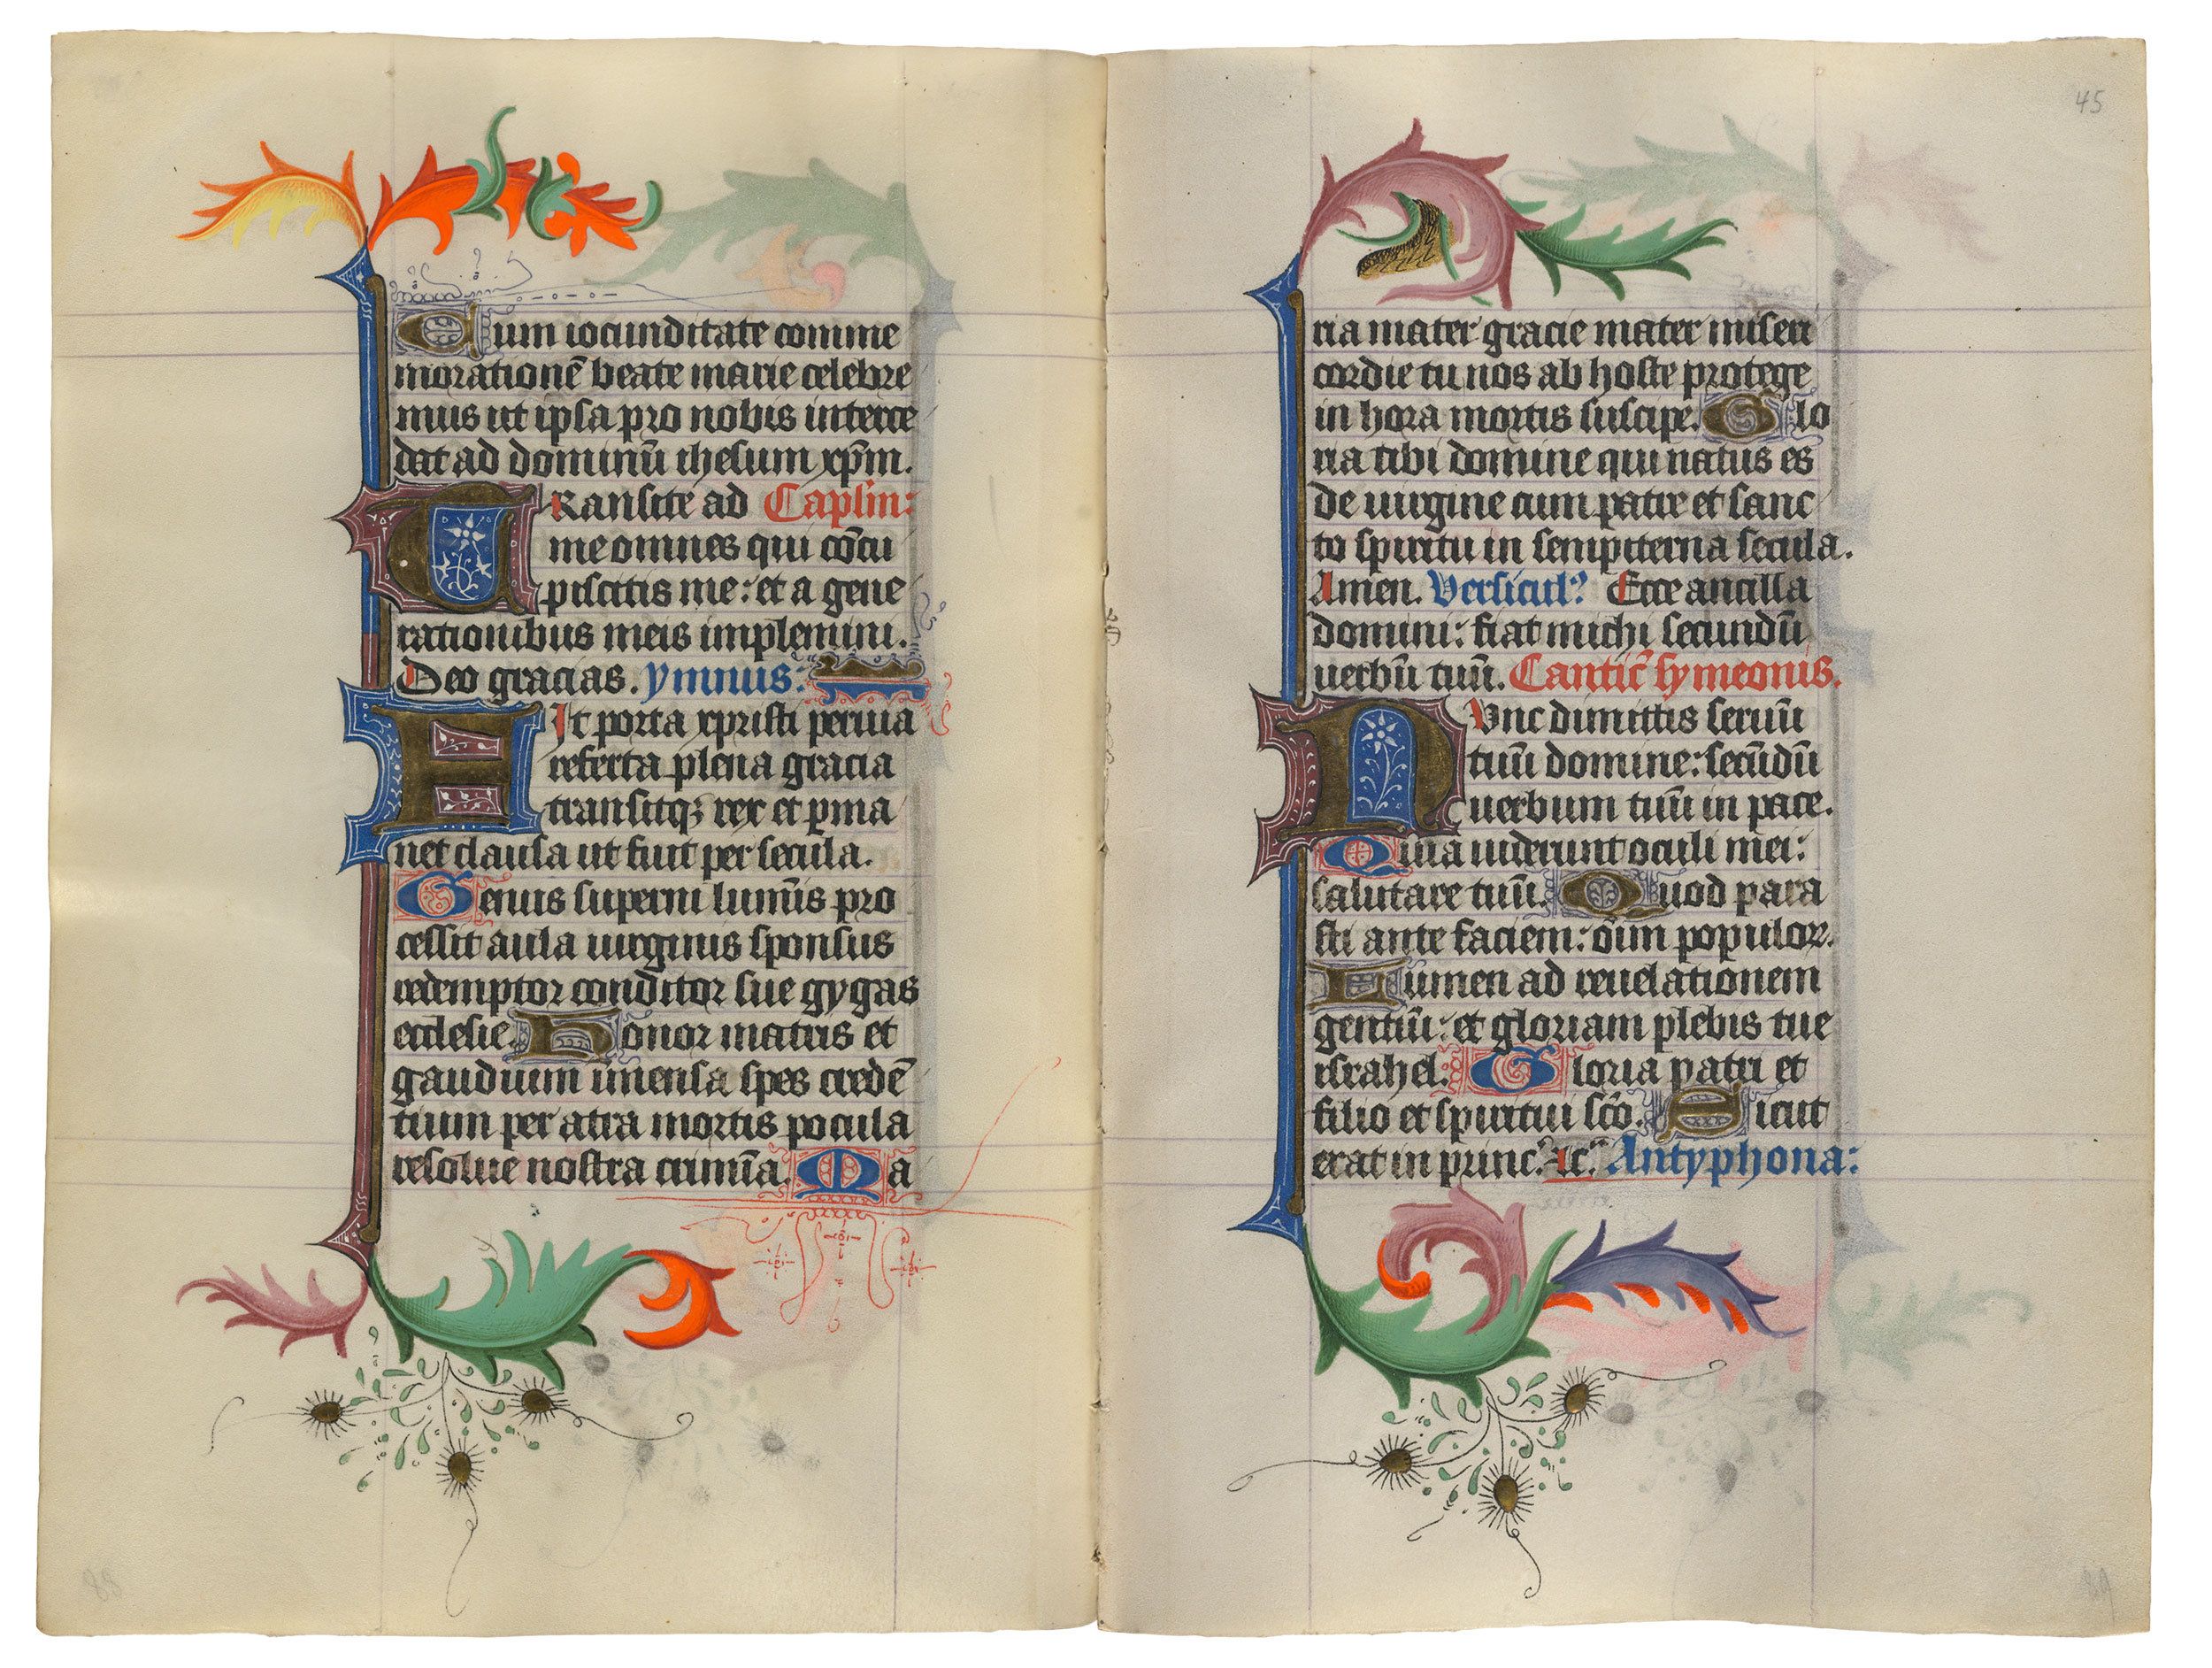 Cum iocunditate comme
moratione beate marie celebre
mus ut ipsa pro nobis interce
dat ad dominū ihesum xp̄m.
TRansite ad Caplm:
me omnes qui cōcu
piscitis me: et a gene
rationibus meis implemini.
Deo gracias. ymnus:
FIt porta xpristi peruia
referta plena gracia
transitqꝫ rex et pma
net clausa ut fuit per secula.
Genus superni lumīs pro
cessit aula uirginis sponsus
redemptor conditor sue gygas
ecclesie. Honor matris et
gaudium īmensa spes credē
tium per atra mortis pocula
resolue nostra crimīa. Ma
45
ria mater gracie mater miseri
cordie tu nos ab hoste protege
in hora mortis suscipe. Glo
ria tibi domine qui natus es
de uirgine cum patre et sanc
to spiritu in sempiterna secula.
Amen. Versicul⁹ Ecce ancilla
domini: fiat michi secundū
uerbū tuū. Cantic̄ symeonis.
NVnc dimittis seruū
tuū domine: secūdū
uerbum tuū in pace.
Quia uiderunt oculi mei:
salutare tuū. Quod para
sti ante faciem: oīm populoꝝ.
Lumen ad reuelationem
gentiū: et gloriam plebis tue
israhel. Gloria patri et
filio et spiritui sc̄o. Sicut
erat in princ. ⁊c. Antyphona:
88
89